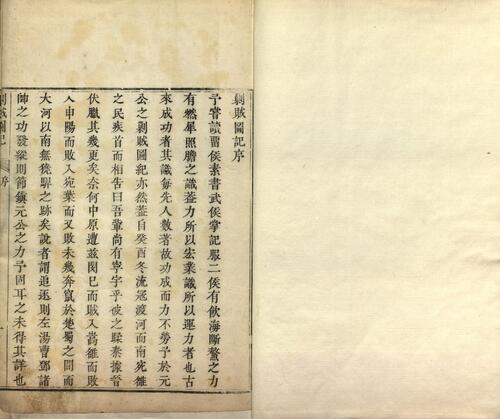 剿賊圖記序
予嘗讀留侯素書武侯掌記服二侯有飲海斷鰲之力
有燃犀照膽之識蓋力所以宏業識所以運力者也古
來成功者其識每先人數著故功成而力不勞予於元
公之剿賊圖紀亦然蓋自癸酉冬流寇渡河而南宛雒
之民疾首而相告曰吾輩尚有寧字乎彼之蹂秦據晉
伏臘其幾更矣奈何中原遭茲閔已而賊入嵩雒而敗
入申陽而敗入宛葉而又敗未幾奔竄於楚蜀之間而
大河以南無豕駻之跡矣說者謂追逐則左湯曹鄧諸
帥之功發縱則節鎮元公之力予固耳之未得其詳也
剿賊圖記
序